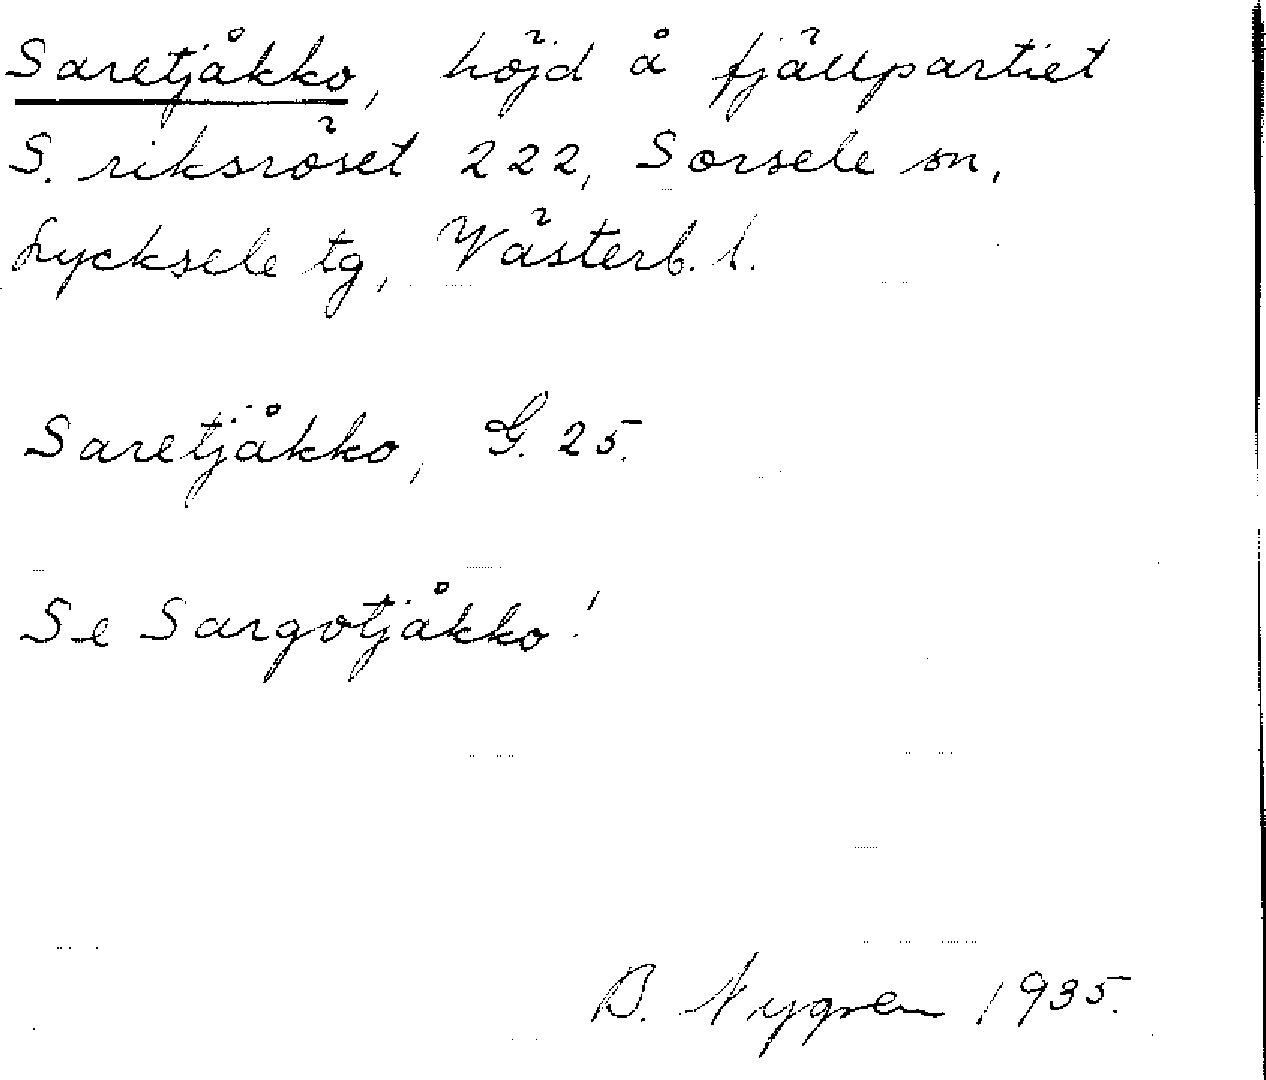 Saretjåkko, höjd å fjällpartiet
S. riksröset 222, Sorsele sn,
Lycksele tg, Västerb. l.
Saretjåkko, G. 25.
Se Sargotjåkko!
B. Nygren 1935.